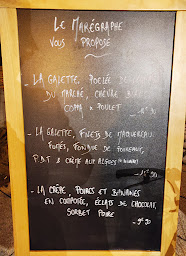 LE MARÉGRAPHE
VOUS PROPOSE
- LA GALETTE, POÊLÉE DE LÉGUMES
DU MARCHÉ, CHÈVRE
COPPA & POULET
- LA GALETTE, FILETS DE MAQUEREAU
FUMÉS, FONDUE DE POIREAUX,
P.D.T & CRÈME AUX ALGUES
- LA CRÊPE, POIRES ET BANANES
EN COMPOTÉE, ÉCLATS DE CHOCOLAT,
SORBET POIRE